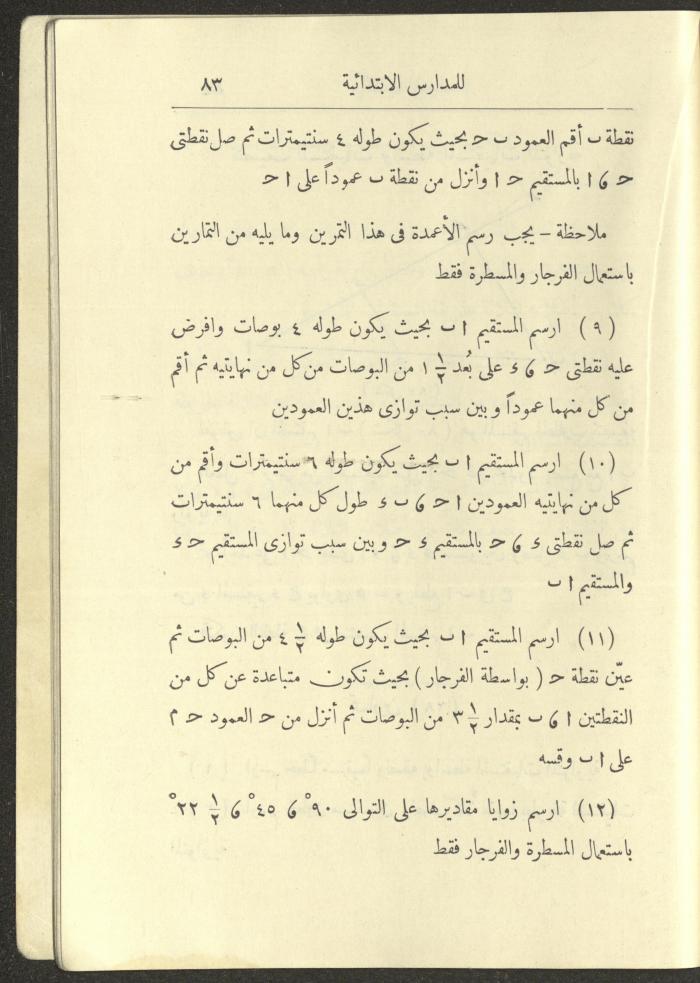 للمدارس الابتدائية ٨٣
نقطة ب أقم العمود ب ح بحيث يكون طوله ٤ سنتيمترات ثم صل نقطتى
ح ٦ ا بالمستقيم ح ا وأنزل من نقطة ب عموداً على ا ح
ملاحظة – يجب رسم الأعمدة فى هذا التمرين وما يليه من التمارين
باستعمال الفرجار والمسطرة فقط
(٩) ارسم المستقيم ا ب بحيث يكون طوله ٤ بوصات وافرض
عليه نقطتى ح ٦ ء على بُعد ١ ١/٢ من البوصات من كل من نهايتيه ثم أقم
من كل منهما عموداً وبين سبب توازى هذين العمودين
(١٠) ارسم المستقيم ا ب بحيث يكون طوله ٦ سنتيمترات وأقم من
كل من نهايتيه العمودين ا ح ٦ ب ء طول كل منهما ٦ سنتيمترات
ثم صل نقطتى ء ٦ ح بالمستقيم ء ح وبين سبب توازى المستقيم ح ء
والمستقيم ا ب
(١١) ارسم المستقيم ا ب بحيث يكون طوله ٤ ١/٢ من البوصات ثم
عيّن نقطة ح (بواسطة الفرجار) بحيث تكون متباعدة عن كل من
النقطتين ا ٦ ب بمقدار ٣ ١/٢ من البوصات ثم أنزل من ح العمود ح م
على ا ب وقسه
(١٢) ارسم زوايا مقاديرها على التوالى ٩٠° ٦ ٤٥° ٦ ٢٢ ١/٢°
باستعمال المسطرة والفرجار فقط